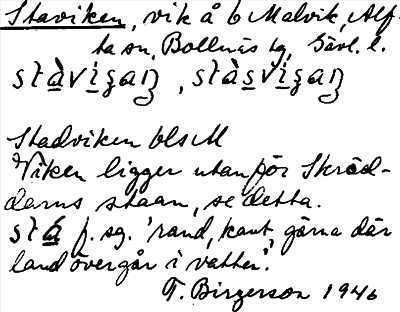 Staviken, vik å 6 Malvik, Alf-
ta sn, Bollnäs tg, Gävl. l.
Stadviken blsM
Viken ligger utanför Skräd-
darns staan, se detta.
f. sg. 'rand, kant, gärna där
land övergår i vatten'.
T. Birgerson 1946